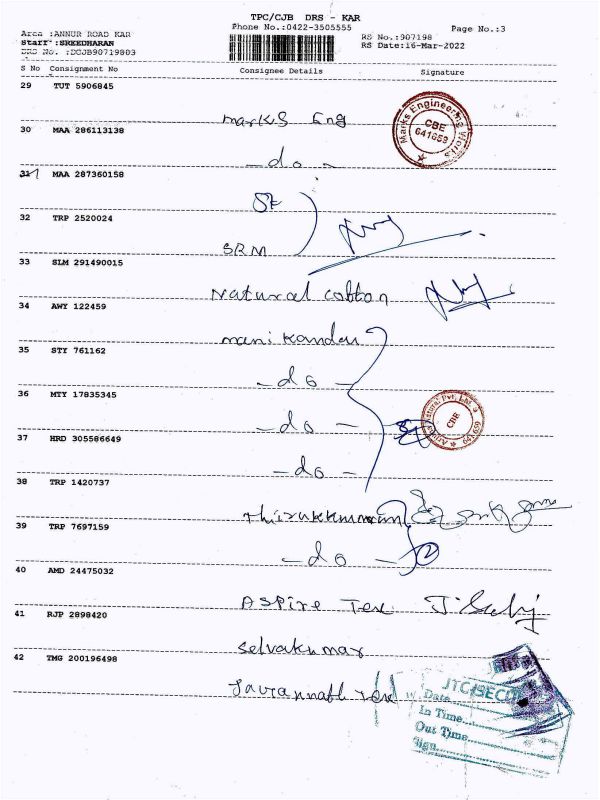 TPC/CJB DRS - KAR
Phone No.:0422-3505555
Page No.:3
Area :ANNUR ROAD KAR
Staff :SREEDHARAN
DRS No. :DCJB90719803
RS No.:907198
RS Date:16-Mar-2022
S No Consignment No Consignee Details Signature
29 TUT 5906845
Marks Eng
Marks Engineering Works
CBE
641659
30 MAA 286113138
- do -
31 MAA 287360158
32 TRP 2520024
SRM
33 SLM 291490015
Natural cotton
34 AWY 122459
mani kandan
35 STY 761162
- do -
36 MTY 17835345
- do -
CBE
641659
37 HRD 305586649
- do -
38 TRP 1420737
39 TRP 7697159
- do -
2
40 AMD 24475032
ASPire Tex
41 RJP 2898420
Selvakumar
42 TMG 200196498
Date
In Time
Out Time
Sign